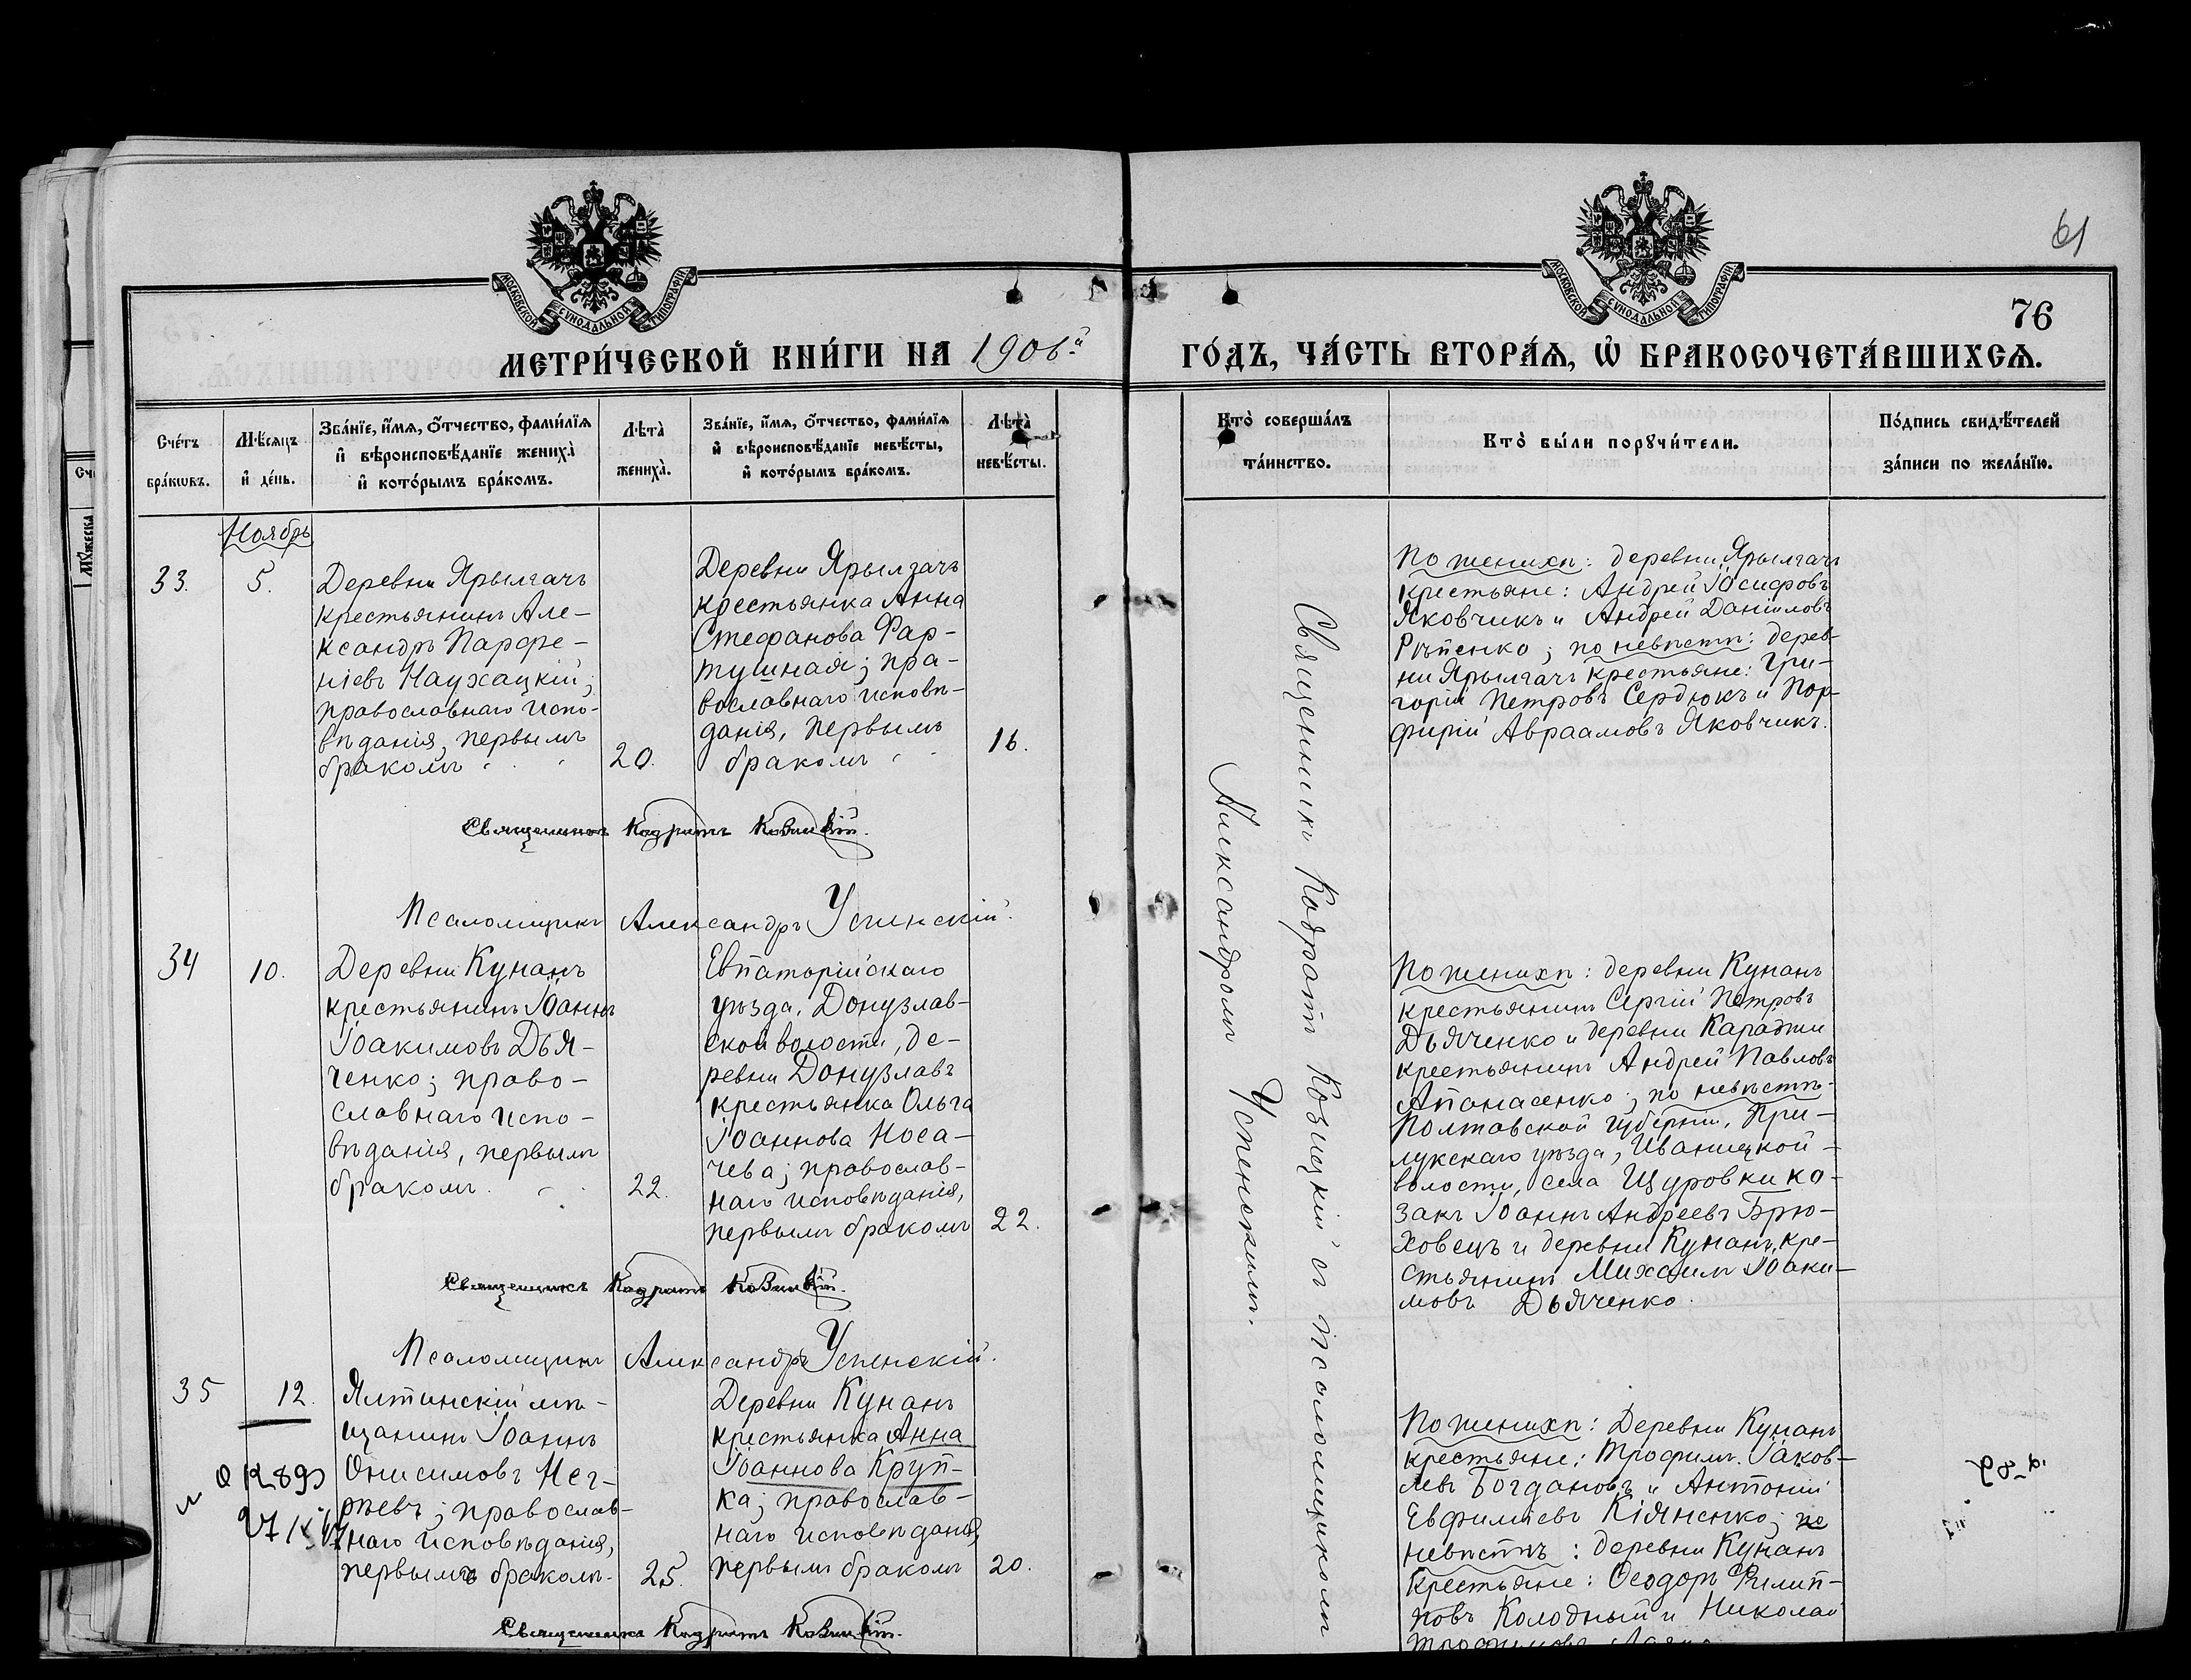 61
76
МОСКОВСКОЙ СѴНОДАЛЬНОЙ ТИПОГРАФІИ
МОСКОВСКОЙ СѴНОДАЛЬНОЙ ТИПОГРАФІИ
МЕТРИ́ЧЕСКОЙ КНИ́ГИ НА 1906й ГО́ДЪ, ЧА́СТЬ ВТОРА́Я, Ѡ БРАКОСОЧЕТА́ВШИХСЯ.
Сче́тъ
бра́кѡвъ.
Мѣ́сяцъ
и҆ де́нь.
Зва́нїе, и҆́мя, ѻ҆́тчество, фами́лїя
и҆ вѣроисповѣ́данїе жениха̀
и҆ кото́рымъ бра́комъ.
Лѣта̀
жениха̀.
Зва́нїе, и҆́мя, ѻ҆́тчество, фами́лїя
и҆ вѣроисповѣ́данїе невѣ́сты,
и҆ кото́рымъ бра́комъ.
Лѣта̀
невѣ́сты.
Кто̀ соверша́лъ
та́инство.
Кто̀ бы́ли порꙋчи́тели.
По́дпись свидѣ́телей
за́писи по жела́нїю.
Ноябрь
33.
5.
Деревни Ярылгачъ
крестьянинъ Але-
ксандръ Парфе-
ніевъ Наухацкій;
православнаго испо-
вѣданія, первымъ
бракомъ
20.
Деревни Ярылгачъ
крестьянка Анна
Стефанова Фар-
тушная; пра-
вославнаго исповѣ-
данія, первымъ
бракомъ
16.
По женихѣ: деревни Ярылгачъ
крестьяне: Андрей Іосифовъ
Яковчикъ и Андрей Даніиловъ
Рѣпенко; по невѣстѣ: дерев-
ни Ярылгачъ крестьяне: Гри-
горій Петровъ Сердюкъ и Пор-
фирій Авраамовъ Яковчикъ.
Священникъ Кодратъ Козицкій.
Псаломщикъ Александръ Успенскій.
34
10.
Деревни Кунанъ
крестьянинъ Іоаннъ
Іоакимовъ Дья-
ченко; право-
славнаго испо-
вѣданія, первымъ
бракомъ.
22.
Евпаторійскаго
уѣзда, Донузлав-
ской волости, де-
ревни Донузлавъ
крестьянка Ольга
Іоаннова Носа-
чева; православ-
наго исповѣданія,
первымъ бракомъ
22.
По женихѣ: деревни Кунанъ
крестьянинъ Сергій Петровъ
Дьяченко и деревни Караджи
крестьянинъ Андрей Павловъ
Апанасенко; по невѣстѣ-
Полтавской губерніи, При-
лукскаго уѣзда, Иваницкой-
волости, села Щуровки ка-
закъ Іоаннъ Андреевъ Брю-
ховецъ и деревни Кунанъ, кре-
стьянинъ Михаилъ Іоаки-
мовъ Дьяченко.
Священникъ Кодратъ Козицкій.
Псаломщикъ Александръ Успенскій.
35
12.
Ялтинскій мѣ-
щанинъ Іоаннъ
Онисимовъ Нег-
рѣевъ; православ-
наго исповѣданія,
первымъ бракомъ.
25.
Деревни Кунанъ
крестьянка Анна
Іоаннова Круп-
ка; православ-
наго исповѣданія,
первымъ бракомъ
20.
По женихѣ: Деревни Кунанъ
крестьяне: Трофимъ Іаков-
левъ Богдановъ и Антоній
Евфиміевъ Кіяненко; по
невѣстѣ: деревни Кунанъ
крестьяне: Ѳеодоръ Филип-
повъ Колодный и Николай
Трофимовъ
Священникъ Кодратъ Козицкій.
Священникъ Кодратъ Козицкій съ псаломщикомъ
Александромъ Успенскимъ.